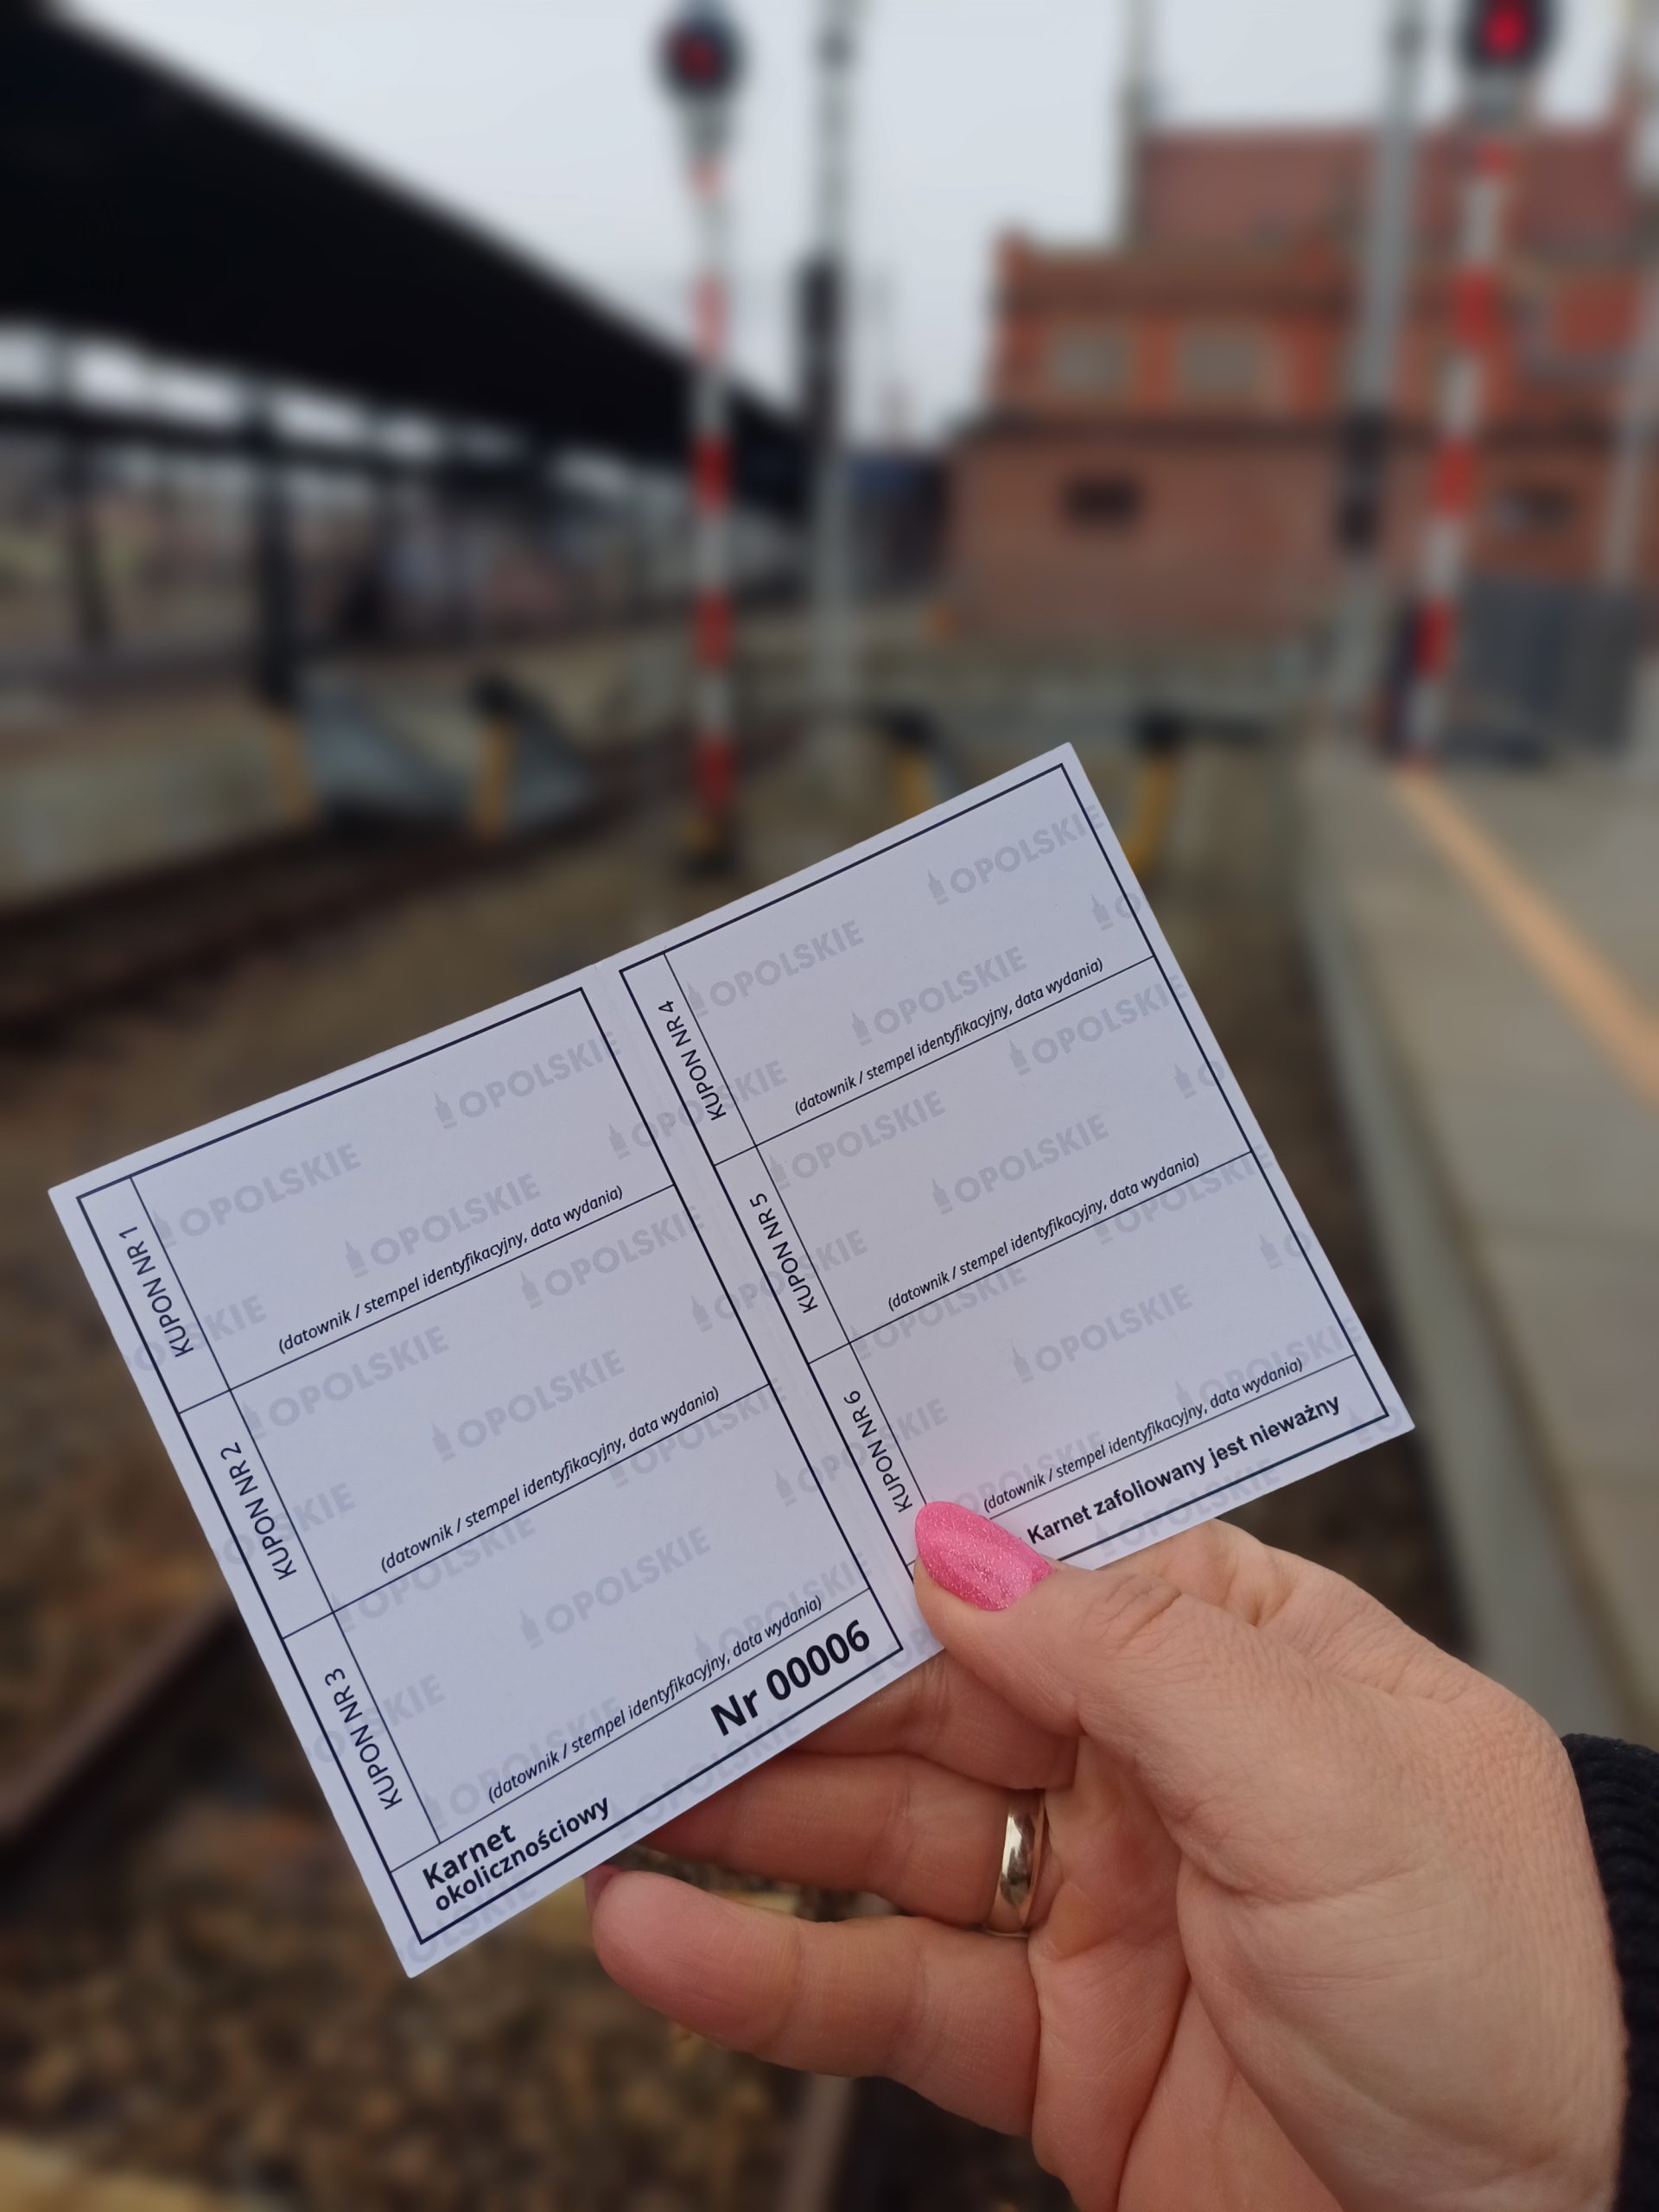 KUPON NR 1
(datownik / stempel identyfikacyjny, data wydania)
KUPON NR 2
(datownik / stempel identyfikacyjny, data wydania)
KUPON NR 3
(datownik / stempel identyfikacyjny, data wydania)
Karnet
okolicznościowy
Nr 00006
KUPON NR 4
(datownik / stempel identyfikacyjny, data wydania)
KUPON NR 5
(datownik / stempel identyfikacyjny, data wydania)
KUPON NR 6
(datownik / stempel identyfikacyjny, data wydania)
Karnet zafoliowany jest nieważny
OPOLSKIE